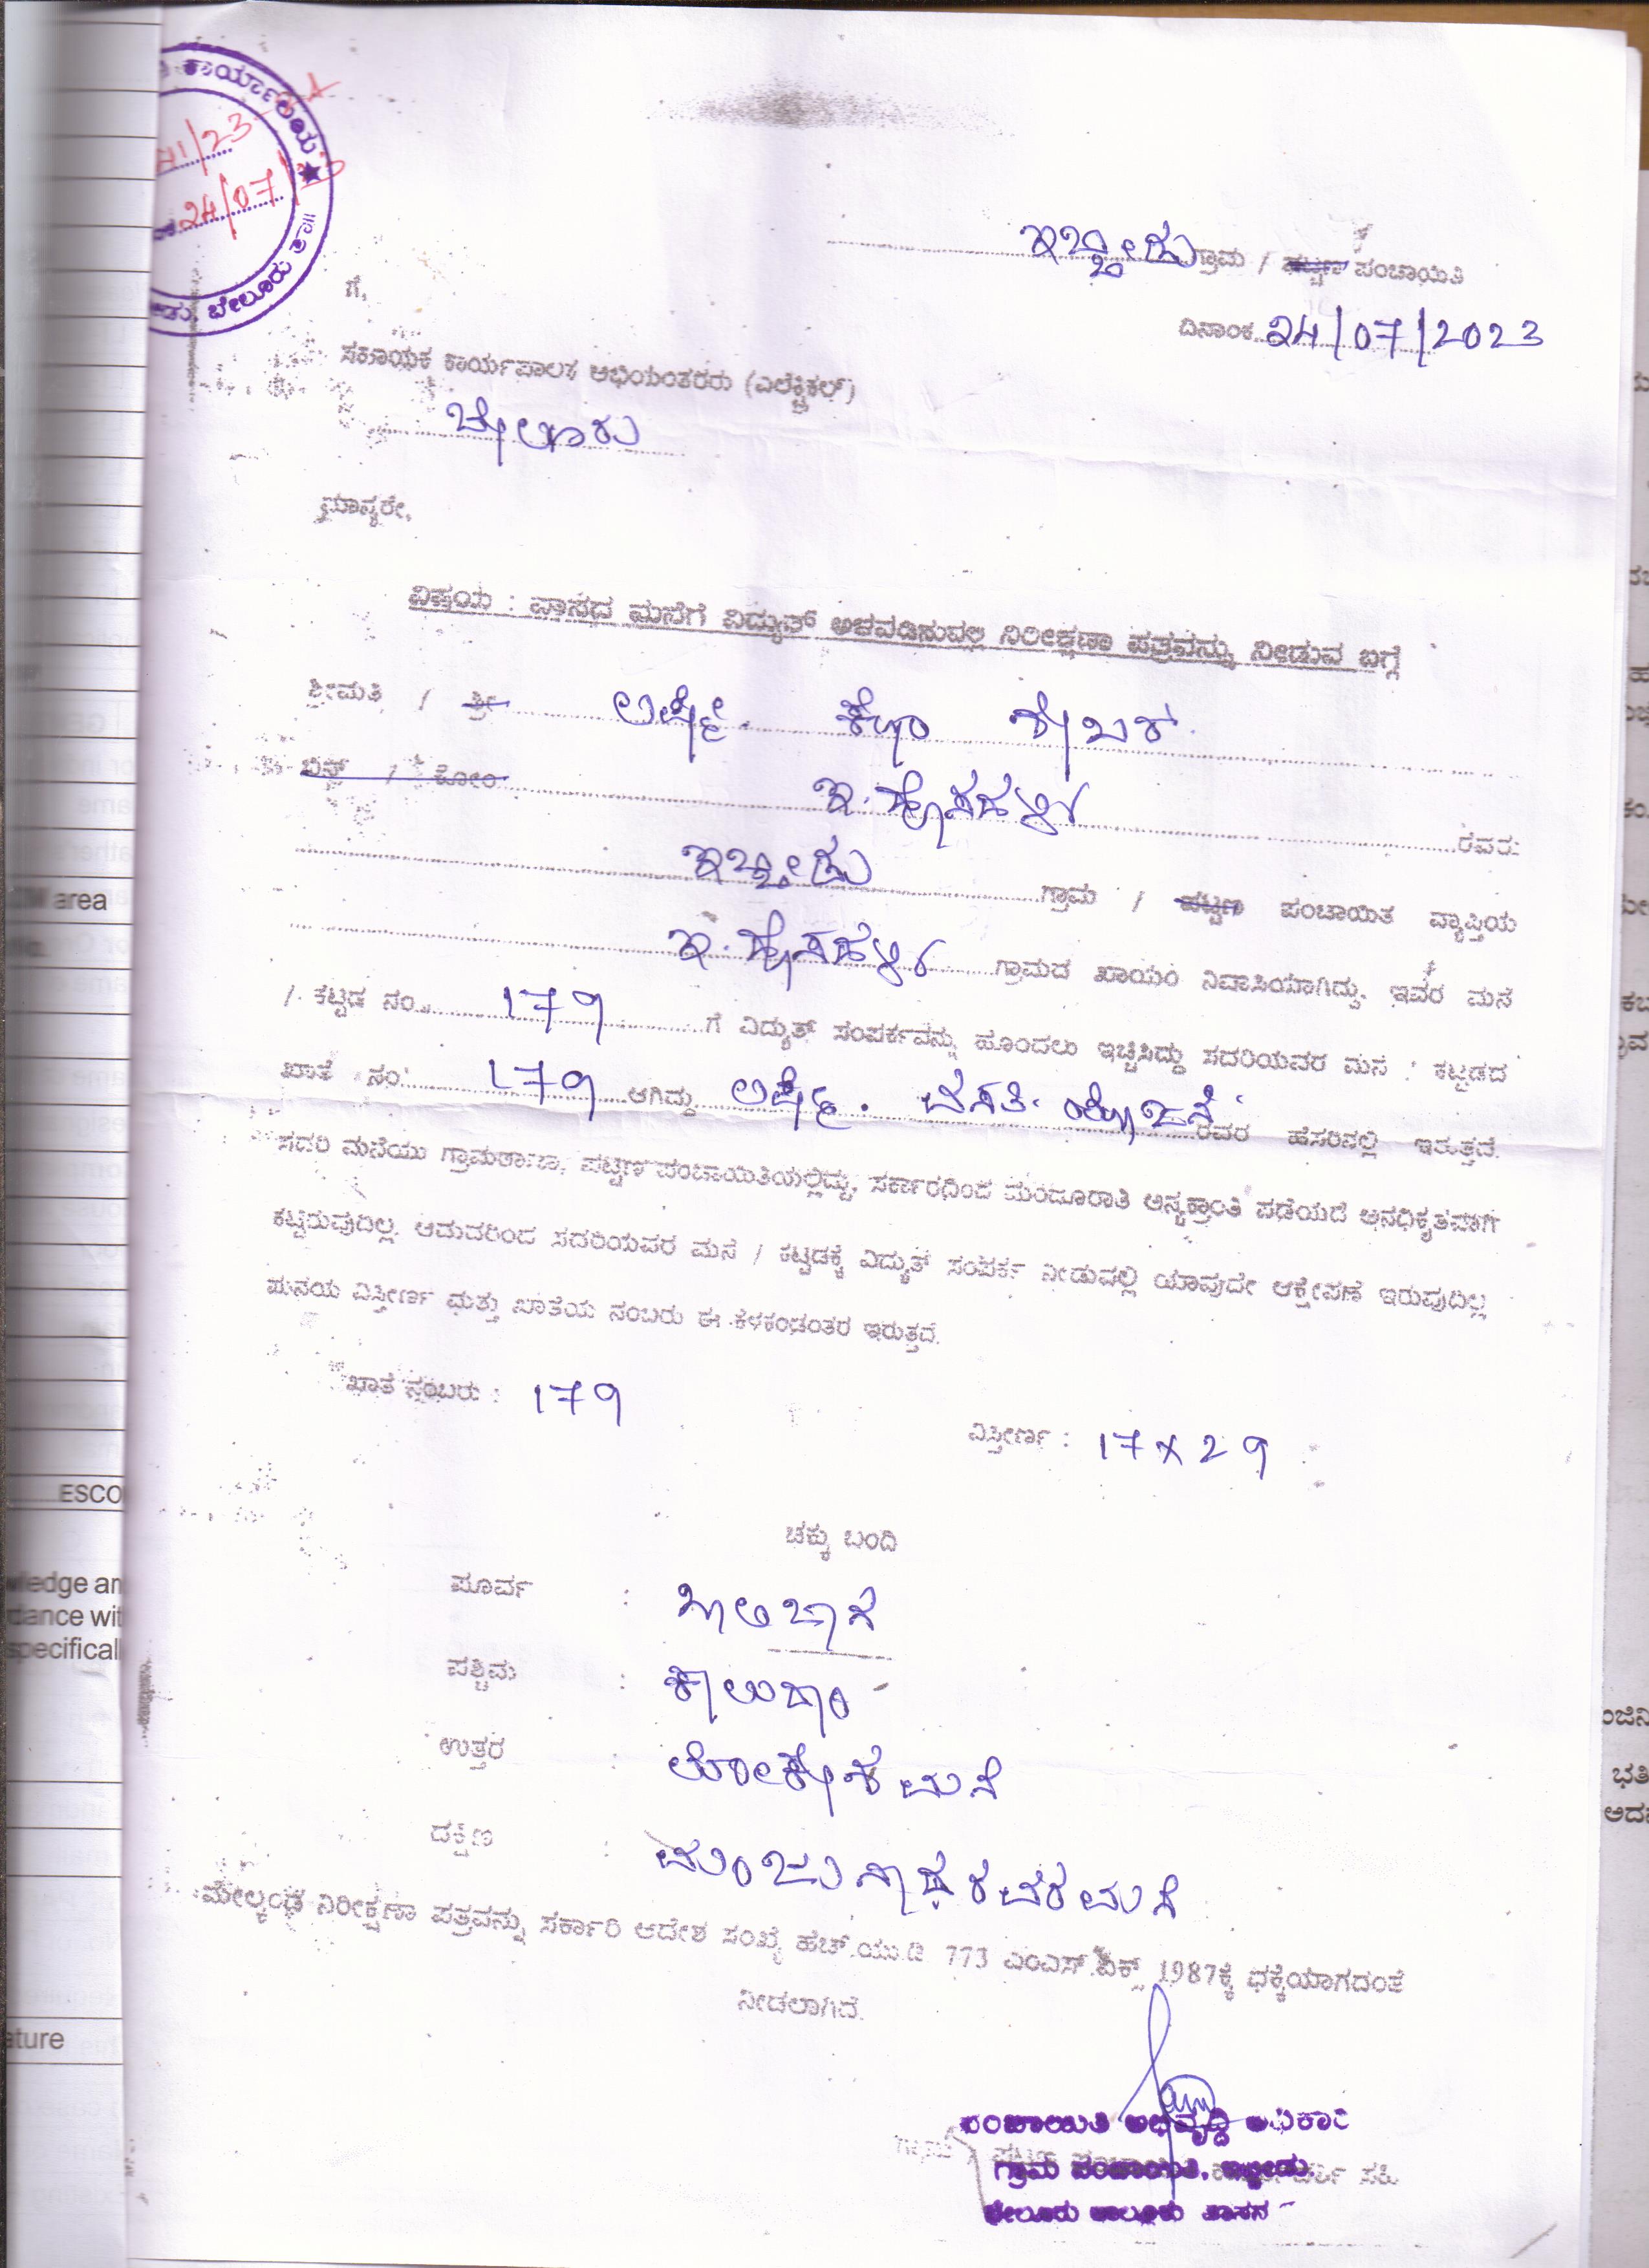 ಕಾರ್ಯಾಲಯ
24/07/23
ಬೇಲೂರು ತಾ॥
ಇಬ್ಬೀಡು ಗ್ರಾಮ / ಪಟ್ಟಣ ಪಂಚಾಯಿತಿ
ಗೆ,
ದಿನಾಂಕ 24/07/2023
ಸಹಾಯಕ ಕಾರ್ಯಪಾಲಕ ಅಭಿಯಂತರರು (ಎಲೆಕ್ಟ್ರಿಕಲ್)
ಬೇಲೂರು
ಮಾನ್ಯರೇ,
ವಿಷಯ : ವಾಸದ ಮನೆಗೆ ವಿದ್ಯುತ್ ಅಳವಡಿಸುವಲ್ಲಿ ನಿರೀಕ್ಷಣಾ ಪತ್ರವನ್ನು ನೀಡುವ ಬಗ್ಗೆ
ಶ್ರೀಮತಿ / ಶ್ರೀ ಕೋಂ ಶೇಖರ್
ಬಿನ್ / ಕೋಂ ಇ.ಹೊಸಹಳ್ಳಿ ರವರು
ಇಬ್ಬೀಡು ಗ್ರಾಮ / ಪಟ್ಟಣ ಪಂಚಾಯಿತಿ ವ್ಯಾಪ್ತಿಯ
ಇ.ಹೊಸಹಳ್ಳಿ ಗ್ರಾಮದ ಖಾಯಂ ನಿವಾಸಿಯಾಗಿದ್ದು, ಇವರ ಮನೆ
/ ಕಟ್ಟಡ ನಂ. 179 ಗೆ ವಿದ್ಯುತ್ ಸಂಪರ್ಕವನ್ನು ಹೊಂದಲು ಇಚ್ಛಿಸಿದ್ದು ಸದರಿಯವರ ಮನೆ / ಕಟ್ಟಡದ
ಖಾತೆ ನಂ. 179 ಆಗಿದ್ದು ವಸತಿ ಯೋಜನೆ ರವರ ಹೆಸರಿನಲ್ಲಿ ಇರುತ್ತದೆ.
ಸದರಿ ಮನೆಯು ಗ್ರಾಮಠಾಣಾ, ಪಟ್ಟಣ ಪಂಚಾಯಿತಿಯಲ್ಲಿದ್ದು, ಸರ್ಕಾರದಿಂದ ಮಂಜೂರಾತಿ ಅನ್ಯಕ್ರಾಂತಿ ಪಡೆಯದೆ ಅನಧಿಕೃತವಾಗಿ
ಕಟ್ಟಿರುವುದಿಲ್ಲ. ಆದುದರಿಂದ ಸದರಿಯವರ ಮನೆ / ಕಟ್ಟಡಕ್ಕೆ ವಿದ್ಯುತ್ ಸಂಪರ್ಕ ನೀಡುವಲ್ಲಿ ಯಾವುದೇ ಆಕ್ಷೇಪಣೆ ಇರುವುದಿಲ್ಲ
ಮನೆಯ ವಿಸ್ತೀರ್ಣ ಮತ್ತು ಖಾತೆಯ ನಂಬರು ಈ ಕೆಳಕಂಡಂತೆ ಇರುತ್ತದೆ.
ಖಾತೆ ನಂಬರು : 179
ವಿಸ್ತೀರ್ಣ : 17 x 29
ಚಕ್ಕು ಬಂದಿ
ಪೂರ್ವ : ಖಾಲಿ ಜಾಗ
ಪಶ್ಚಿಮ :
ಉತ್ತರ : ಲೋಕೇಶ ಮನೆ
ದಕ್ಷಿಣ : ಮಂಜುನಾಥರವರ ಮನೆ
ಮೇಲ್ಕಂಡ ನಿರೀಕ್ಷಣಾ ಪತ್ರವನ್ನು ಸರ್ಕಾರಿ ಆದೇಶ ಸಂಖ್ಯೆ ಹೆಚ್.ಯು.ಡಿ 773 ಎಂಎನ್.ಎಕ್ಸ್ 1987ಕ್ಕೆ ಧಕ್ಕೆಯಾಗದಂತೆ
ನೀಡಲಾಗಿದೆ.
ಪಂಚಾಯಿತಿ ಅಭಿವೃದ್ಧಿ ಅಧಿಕಾರಿ
ಗ್ರಾಮ ಪಂಚಾಯಿತಿ, ಇಬ್ಬೀಡು.
ಬೇಲೂರು ತಾಲೂಕು ಹಾಸನ
area
ESCO
ature